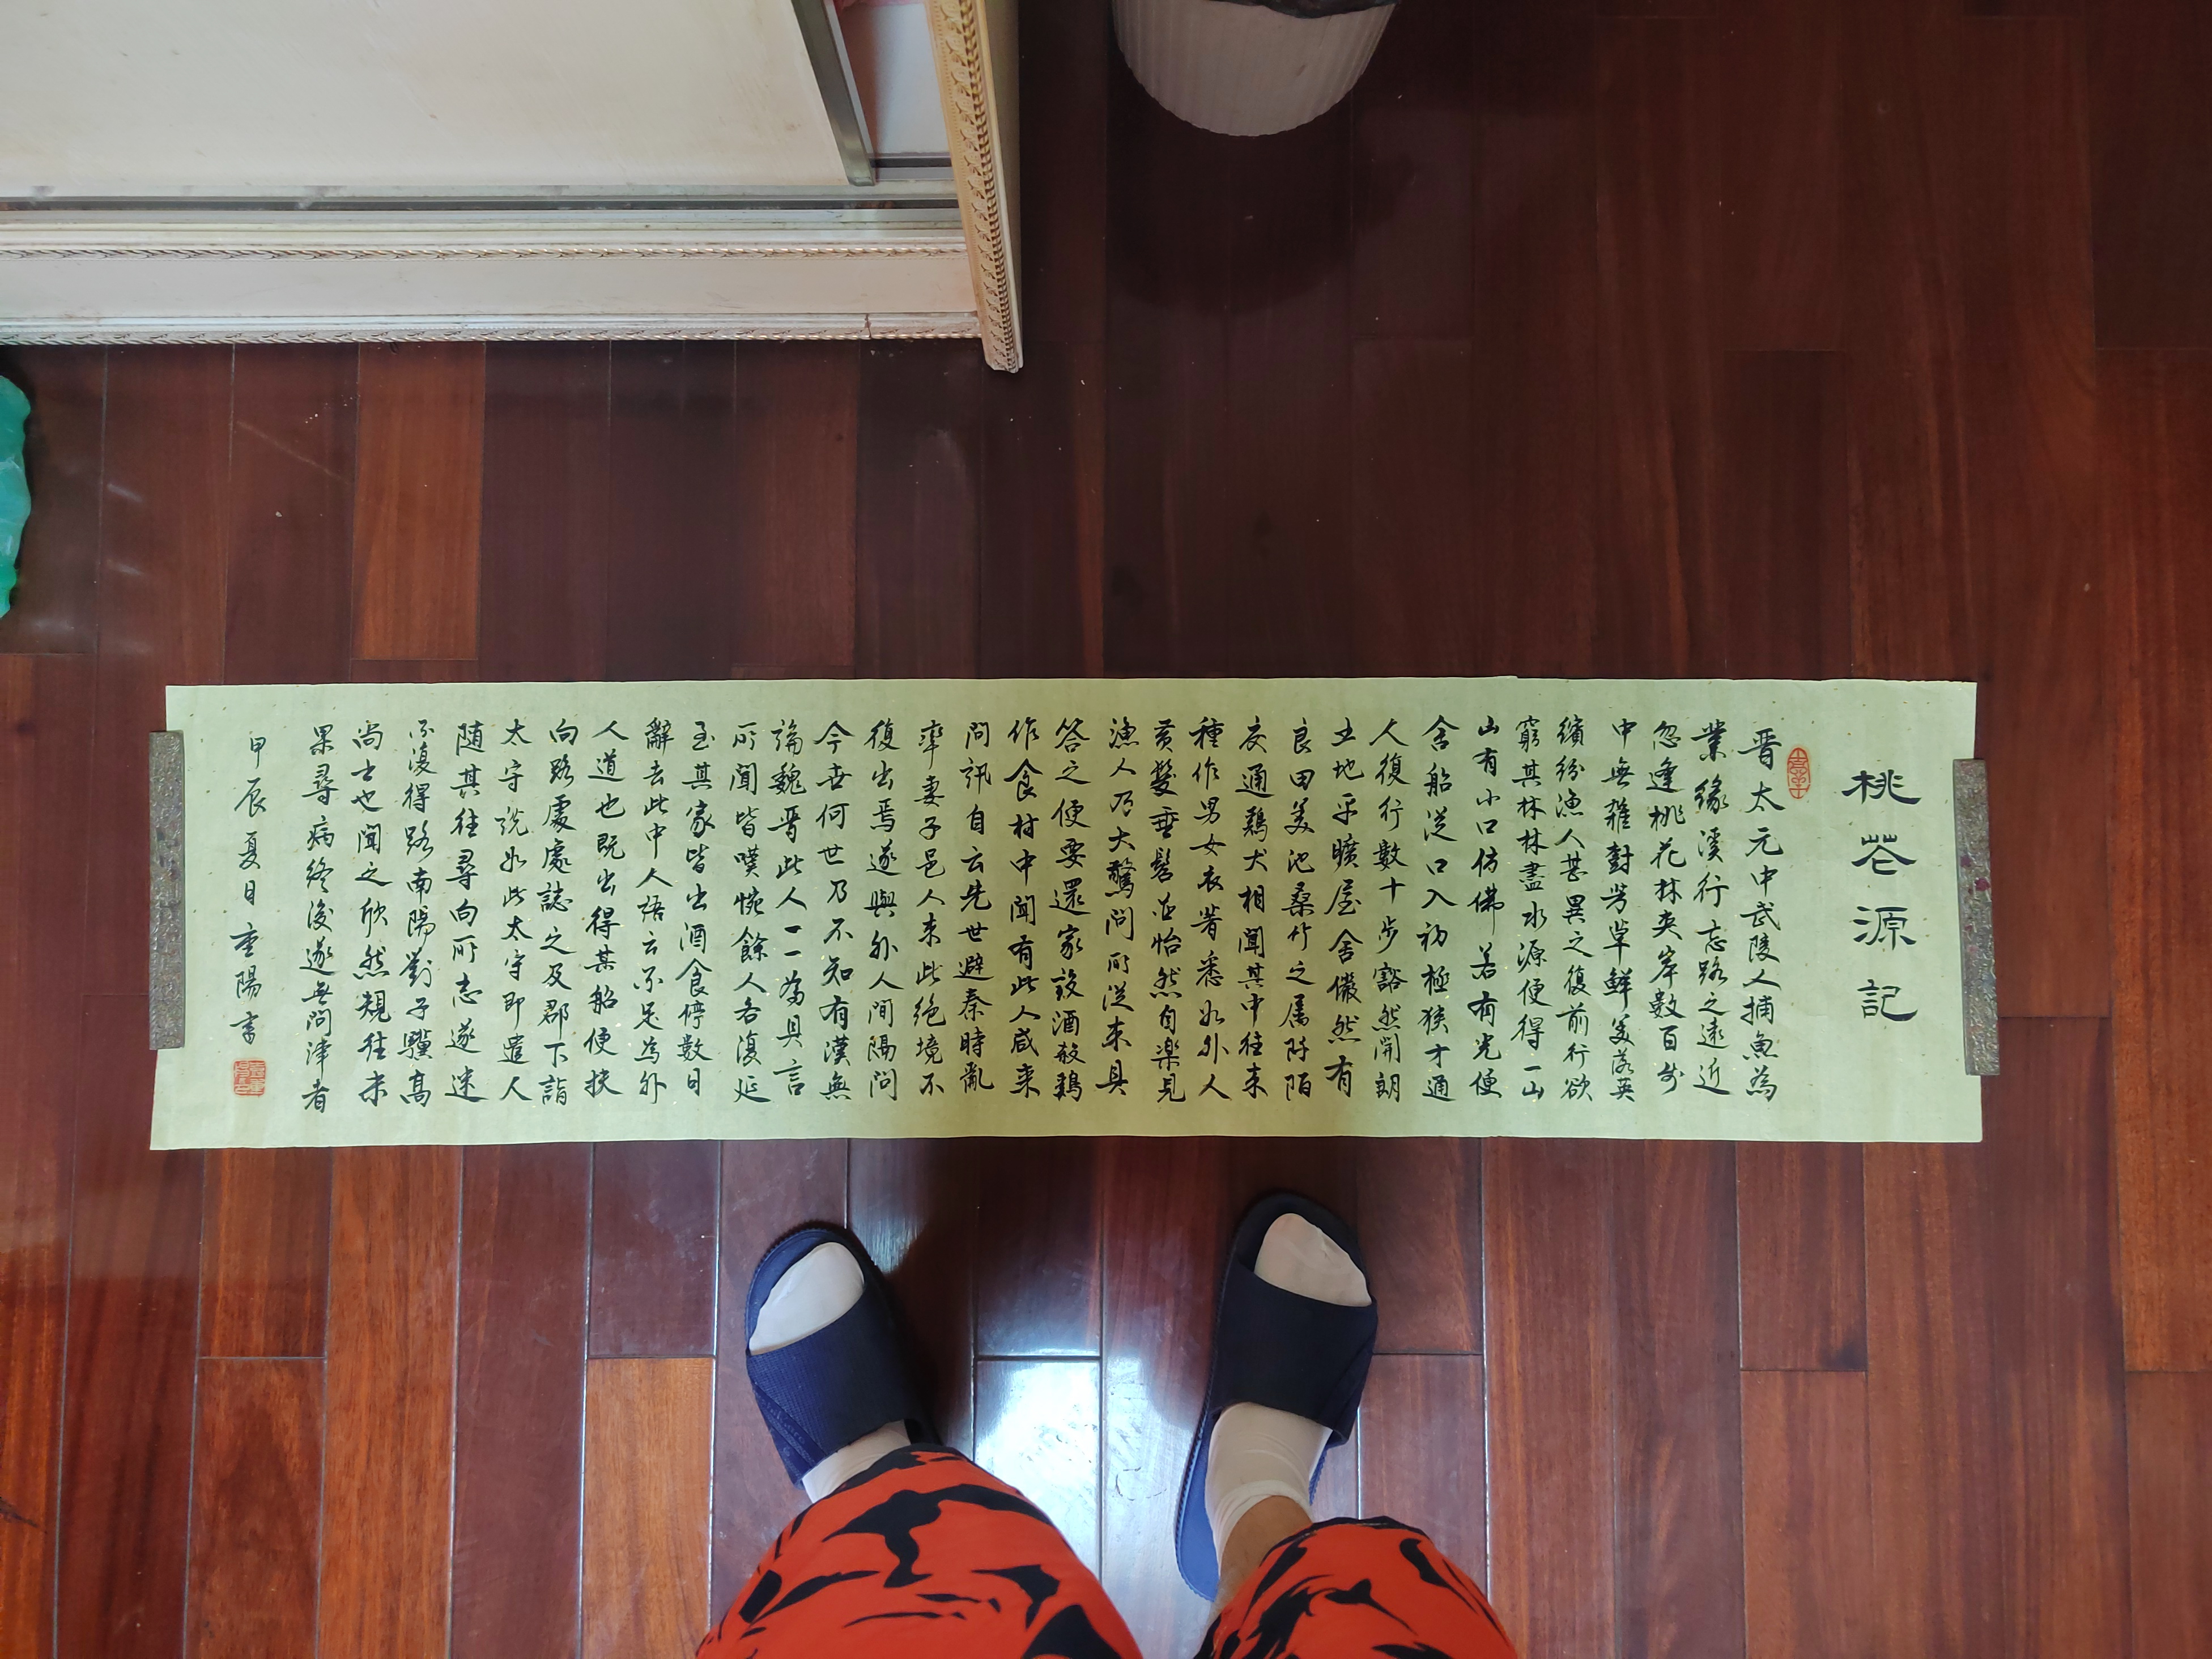 桃花源記
晋太元中武陵人捕魚為
業緣溪行忘路之遠近
忽逢桃花林夾岸數百步
中無雜對芳草鮮美落英
繽紛漁人甚異之復前行欲
窮其林林盡水源便得一山
山有小口仿佛若有光便
舍船从口入初極狹才通
人復行數十步豁然開朗
土地平曠屋舍儼然有
良田美池桑竹之属阡陌
交通鷄犬相聞其中往来
種作男女衣著悉如外人
黄髮垂髫並怡然自樂見
漁人乃大驚問所從来具
答之便要還家設酒殺鷄
作食村中聞有此人咸来
問訊自云先世避秦時亂
率妻子邑人来此絶境不
復出焉遂與外人間隔問
今世何世乃不知有漢無
論魏晋此人一一為具言
所聞皆嘆惋餘人各復延
至其家皆出酒食停數日
辭去此中人語云不足為外
人道也既出得其船便扶
向路處處誌之及郡下詣
太守説如此太守即遣人
随其往尋向所志遂迷
不復得路南陽劉子驥高
尚士也聞之欣然規往未
果尋病終後遂無問津者
甲辰夏日重陽書